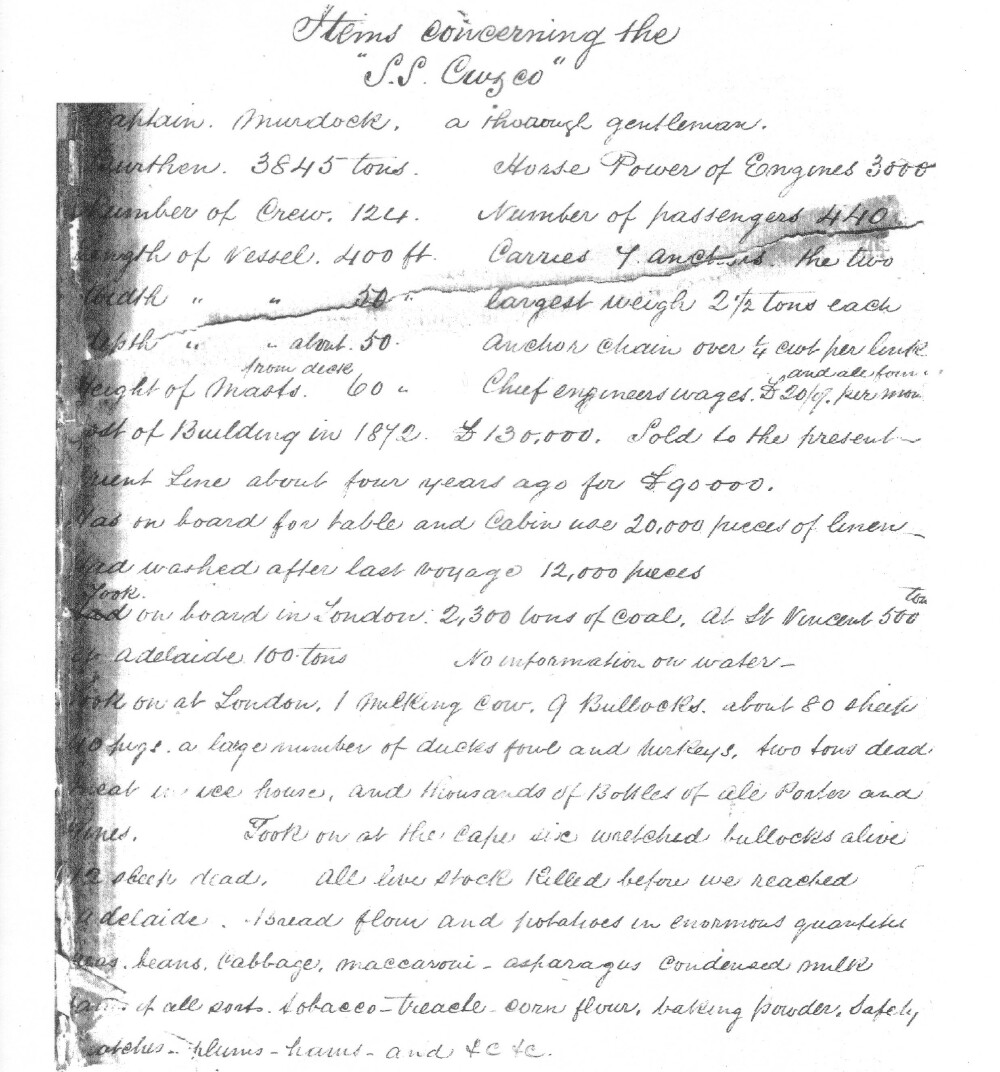 Items concerning the
"S.S. Cuzco"
Captain. Murdock. a thorough gentleman.
Burthen. 3845 tons. Horse Power of Engines 3000
Number of Crew. 124. Number of passengers 440
Length of Vessel. 400 ft. Carries 7 anchors the two
Width " " 50 " largest weigh 2½ tons each
depth " " about 50. anchor chain over ¼ cwt per link
from deck and all foun
Height of Masts. 60 " Chief engineers wages. £20/ per mon
Cost of Building in 1872. £130,000. Sold to the present
Orient Line about four years ago for £90000.
Has on board for table and Cabin use 20,000 pieces of linen
Had washed after last voyage 12,000 pieces
Took ton
on board in London. 2,300 tons of coal. At St Vincent 500
adelaide 100 tons No information on water
Took on at London. 1 milking cow. 9 Bullocks. about 80 sheep
pigs. a large number of ducks fowl and turkeys, two tons dead
meat in ice house, and thousands of Bottles of ale Porter and
Wines. Took on at the Cape six wretched bullocks alive
12 sheep dead. All live stock killed before we reached
Adelaide. Bread flour and potatoes in enormous quantities
peas. beans. Cabbage, maccaroni - asparagus condensed milk
jams of all sorts. tobacco - treacle - corn flour, baking powder. Safety
matches - plums - hams - and &c &c.